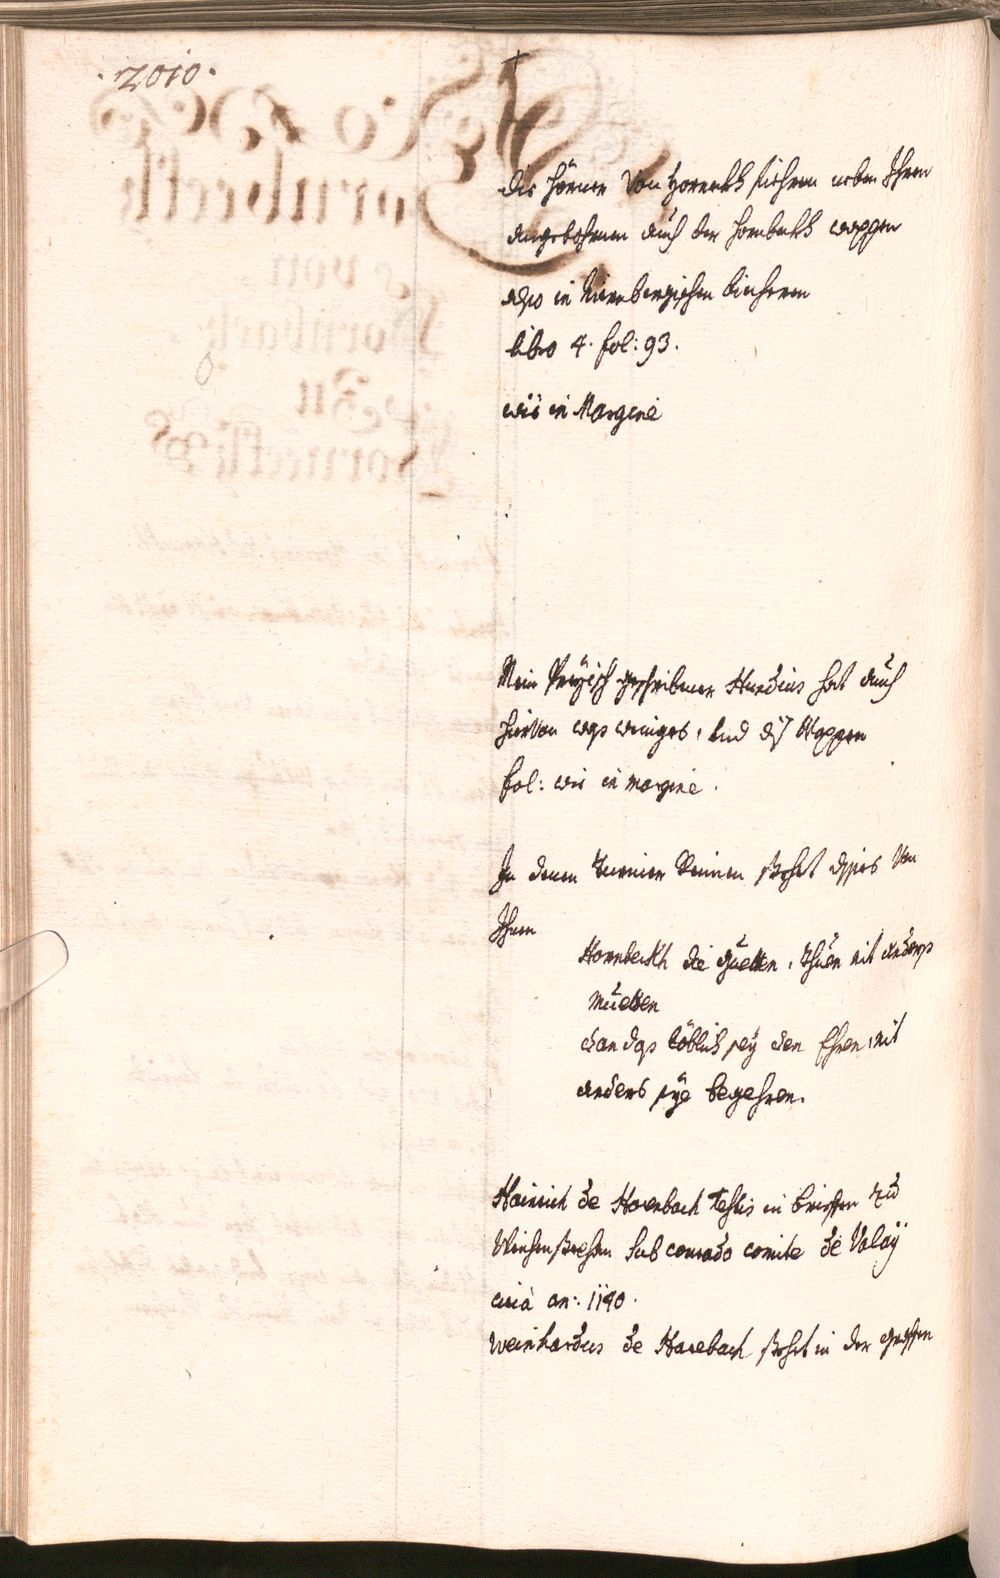 . 2010 .
Die Hörner Von Horneckh fiehren neben Ihren
angebohrnen auch der Hornbekh wappen
also in Nürnbergischen büecheren
libro 4. fol: 93.
wie in Margine
Mein Preysisch geschribener Hundius hat auch
hieVon was weniges, und dis Wappen
fol: wie in margine .
In denen Turnier Reimen steht dises Von
Ihnen
Hornbeckh die gueten, thuen nit anders
mueten
dan das löblich sey den Ehren, nit
anders sye begehren.
Heinrich de Hornbach testis in brieffen zu
Weichenstephen sub conrado comite de Valaÿ
circa an: 1190 .
Weinhardus de Harebach steht in der grossen